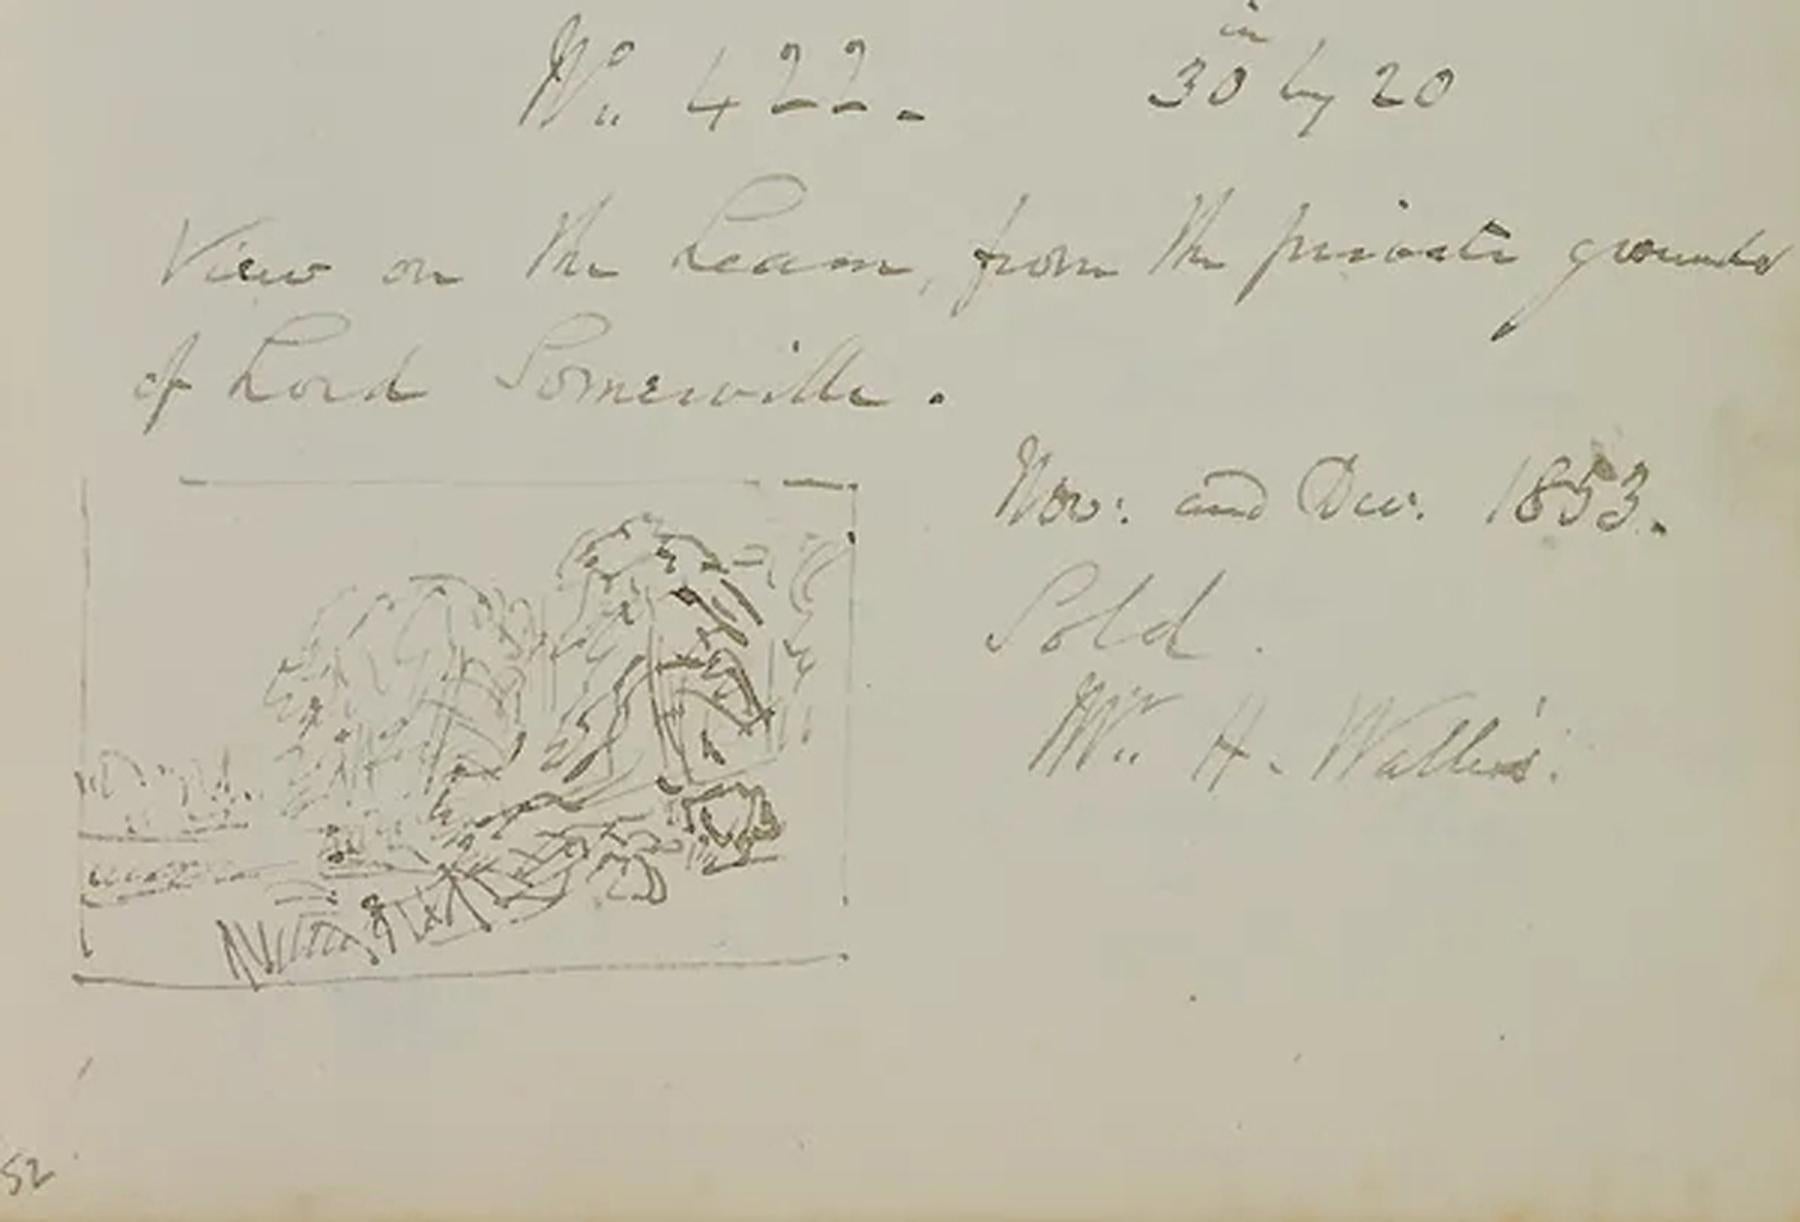 No. 422. 30 in by 20
View on the Leam, from the private grounds
of Lord Somerville.
Nov: and Dec. 1853.
Sold.
Mr. H. Wallis.
52